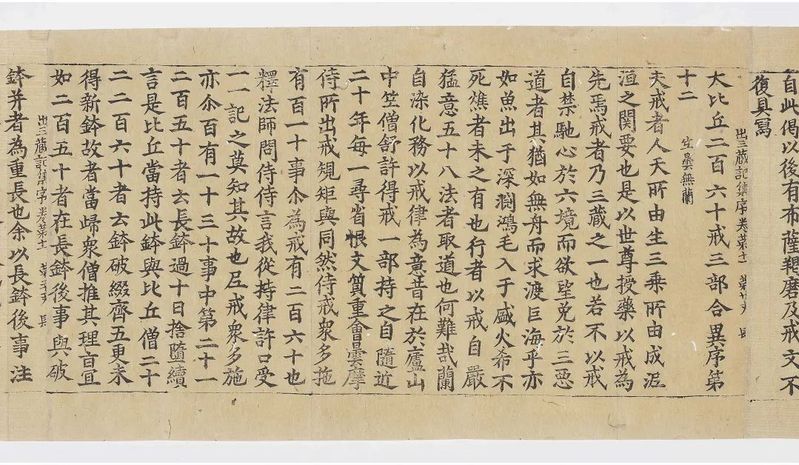 自此偈以後有布薩羯磨及戒文不
復具寫
出三藏記集序卷第十一
大比丘二百六十戒三部合異序第
十二
竺曇無蘭
夫戒者人天所由生三乘所由成泥
洹之關要也是以世尊授藥以戒為
先焉戒者乃三藏之一也若不以戒
自禁馳心於六境而欲望免於三惡
道者其猶如無舟而求渡巨海乎亦
如魚出于深淵鴻毛入于盛火希不
死燋者未之有也行者以戒自嚴
猛意五十八法者取道也何難哉蘭
自染化務以戒律為意昔在於廬山
中竺僧舒許得戒一部持之自隨近
二十年每一尋省恨文質重會曇摩
侍所出戒規矩與同然侍戒眾多施
有百一十事尒為戒有二百六十也
釋法師問侍侍言我從持律許口受
一一記之莫知其故也尼戒眾多施
亦尒百有一十三十事中第二十一
二百五十者云長鉢過十日捨墮續
言是比丘當持此鉢與比丘僧二十
二二百六十者云鉢破綴齊五更未
得新鉢故者當歸眾僧推其理旨宜
如二百五十者在長鉢後事與破
出三藏記集序卷第十一
鉢并者為重長也余以長鉢後事注